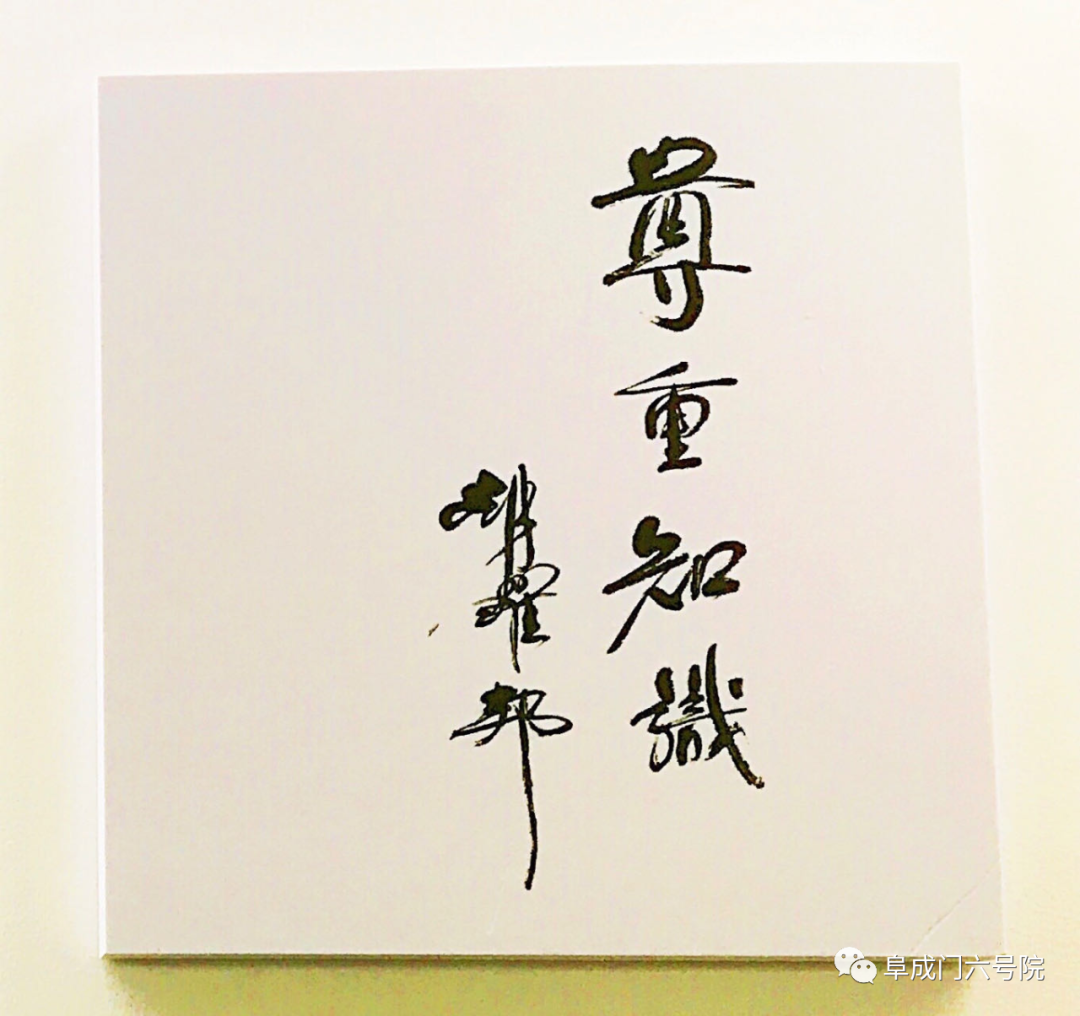 尊重知識
胡耀邦
阜成门六号院